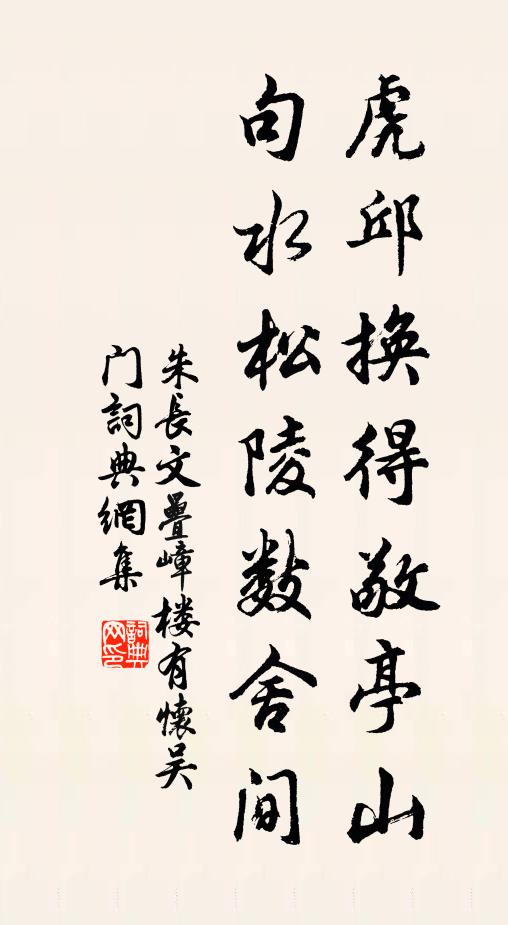 虎邱換得敬亭山
句水松陵數舍間
朱長文疊嶂楼有懷吴
门詞典網集
詞典网印